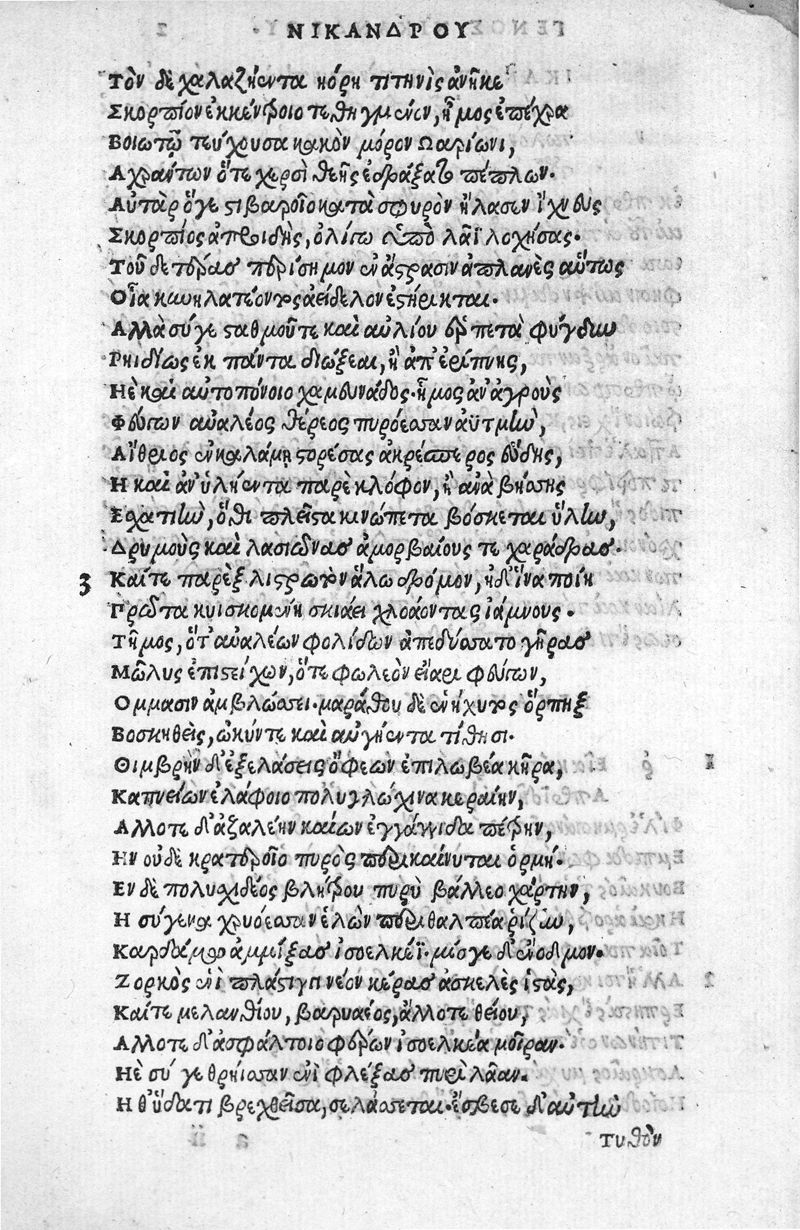 ΝΙΚΑΝΔΡΟΥ
Τὸν δὲ χαλαζήεντα κόρη τιτηνὶς ἀνῆκε
Σκορπίον ἐκ κέντροιο τεθηγμένον, ἦμος ἐπέχρα
Βοιωτῷ τεύχουσα κακὸν μόρον Ωαρίωνι,
Αχράντων ὅτε χερσὶ θεῆς ἐδράξατο πέπλων.
Αὐτὰρ ὅγε στιβαροῖο κατὰ σφυρὸν ἤλασεν ἴχνους
Σκορπίος ἀπροϊδὴς, ὀλίγῳ ὑπὸ λᾶϊ λοχήσας.
Τοῦ δὲ τέρας περίσημον ἐν ἄστρασιν ἀπλανὲς αὕτως
Οἷα κυνηλατέοντος ἀείδελον ἐστήρικται.
Αλλὰ σύ γε σταθμοῦ τε καὶ αὐλίου ἑρπετὰ φύγδην
Ρηιδίως ἐκ πάντα διώξεαι, ἢ ἀπ' ἐρίπνης,
Ηὲ καὶ αὐτοπόνοιο χαμευνάδος. ἦμος ἀν' ἀγροὺς
Φεύγων αὐαλέος θέρεος πυρόεσσαν ἀϋτμὴν,
Αἴθριος ἐν καλάμῃ στορέσας ἀκρέσπερος εὕδῃς,
Η καὶ ἀν' ὑλήεντα παρὲκ λόφον, ἢ ἀνὰ βήσσης
Εσχατιὴν, ὅθι πλεῖστα κινώπετα βόσκεται ὕλην,
Δρυμοὺς καὶ λασιῶνας ἀμορβαίους τε χαράδρας.
3 Καί τε παρὲξ λιστρωτὸν ἅλω δρόμον, ἠδ' ἵνα ποίη
Πρῶτα κυισκομένη σκιάει χλοάοντας ἰάμνους.
Τῆμος, ὅτ' αὐαλέων φολίδων ἀπεδύσατο γῆρας
Μῶλυς ἐπιστείχων, ὅτε φωλεὸν εἴαρι φεύγων,
Ομμασιν ἀμβλώσσει. μαράθου δὲ ἑ νήχυτος ὅρπηξ
Βοσκηθεὶς, ὠκύν τε καὶ αὐγήεντα τίθησι.
Θιμβρὴν δ' ἐξελάσεις ὄφεων ἐπιλωβέα κῆρα,
Καπνείων ἐλάφοιο πολυγλώχινα κεραίην,
Αλλοτε δ' ἀζαλέην καίων ἐγγάγγιδα πέτρην,
Ην οὐδὲ κρατεροῖο πυρὸς περικαίνυται ὁρμή.
Εν δὲ πολυσχιδέος βλήτρου πυρὶ βάλλεο χαίτην,
Η σύ γε καχρυόεσσαν ἑλὼν περιθαλπέα ῥίζαν,
Καρδάμῳ ἀμμίξας ἰσοελκέϊ. μίσγε δ' ἔνοδμον.
Ζορκὸς ἐνὶ πλάστιγγι νέον κέρας ἀσκελὲς ἱστὰς,
Καί τε μελανθίου, βαρυαέος, ἄλλοτε θείου,
Αλλοτε δ' ἀσφάλτοιο φέρων ἰσοελκέα μοῖραν.
Ηὲ σύ γε θρήισσαν ἐνὶ φλέξας πυρὶ λᾶαν.
Η θ' ὕδατι βρεχθεῖσα, σελάσσεται. ἔσβεσε δ' αὐτὴν
Τυθὸν